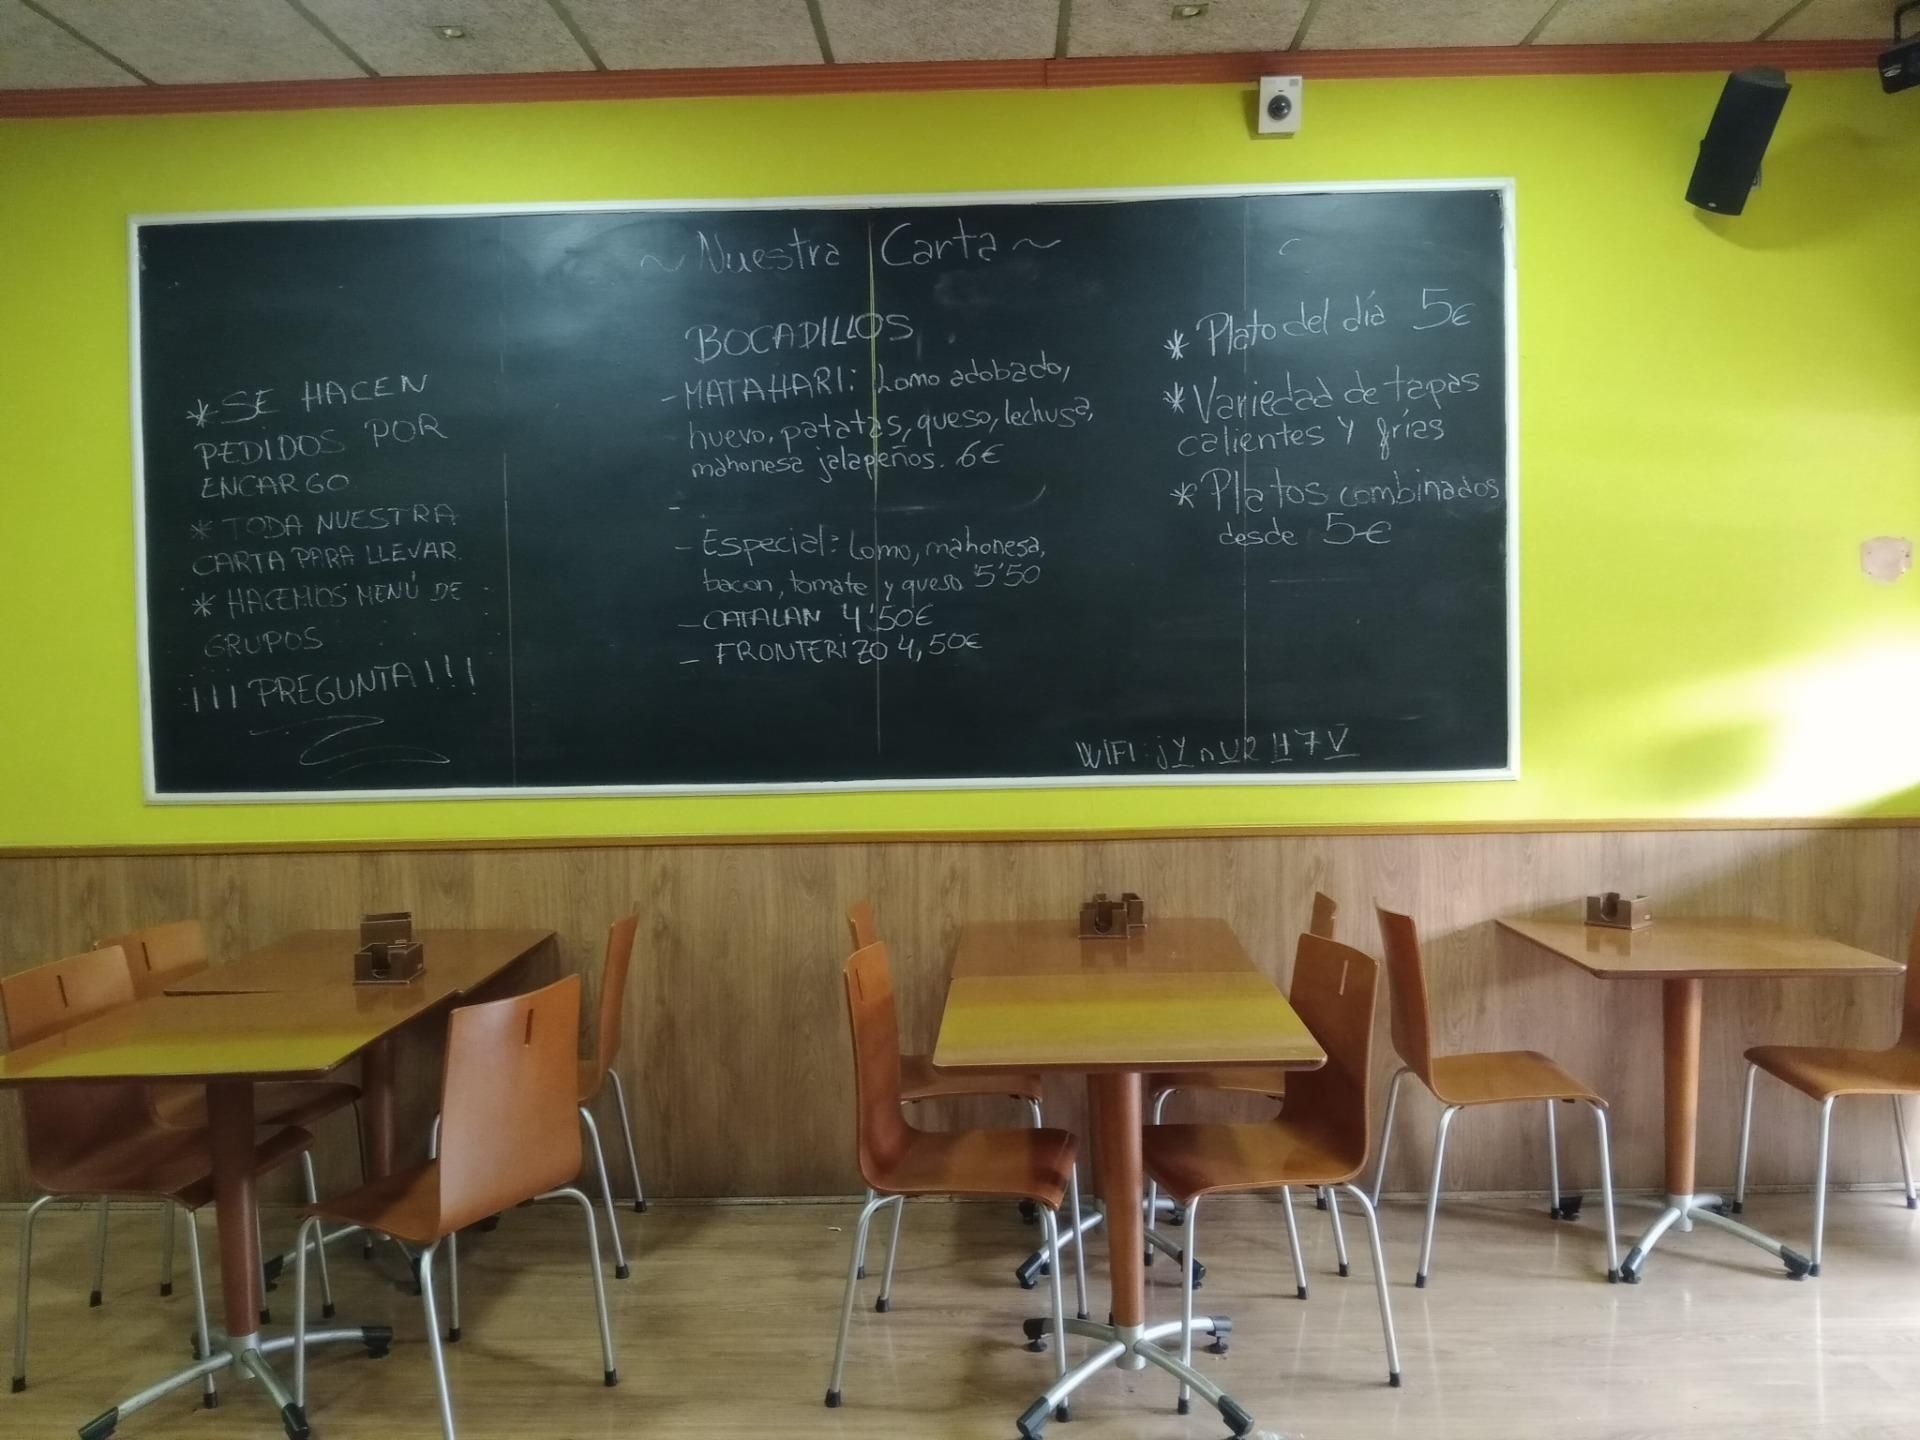 ~ Nuestra Carta ~
*SE HACEN
PEDIDOS POR
ENCARGO
* TODA NUESTRA
CARTA PARA LLEVAR.
* HACEMOS MENÚ DE
GRUPOS
¡¡¡PREGUNTA!!!
BOCADILLOS
- MATAHARI: Lomo adobado,
huevo, patatas, queso, lechuga,
mahonesa jalapeños. 6€
-
- Especial: Lomo, mahonesa,
bacon, tomate y queso 5'50
- CATALAN 4'50€
- FRONTERIZO 4,50€
* Plato del día 5€
* Variedad de tapas
calientes y frías
* Platos combinados
desde 5€
WIFI: jYnUR H7V